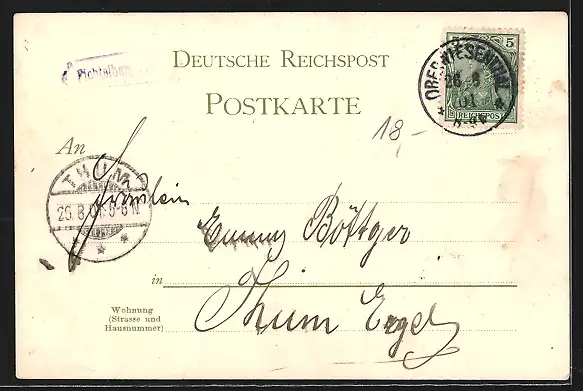 DEUTSCHE REICHSPOST
POSTKARTE
5
REICHSPOST
OBERWIESENTHAL
26 8
01
18,-
Fichtelberg
An
THUM
26.8.01 5-6 N
Fräulein
Emmy Böttger
in
Thum Erzgeb
Wohnung
(Strasse und
Hausnummer)